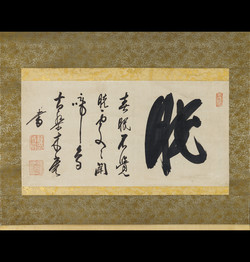 眠
春眠不覺
曉處々聞
啼鳥
木菴
書